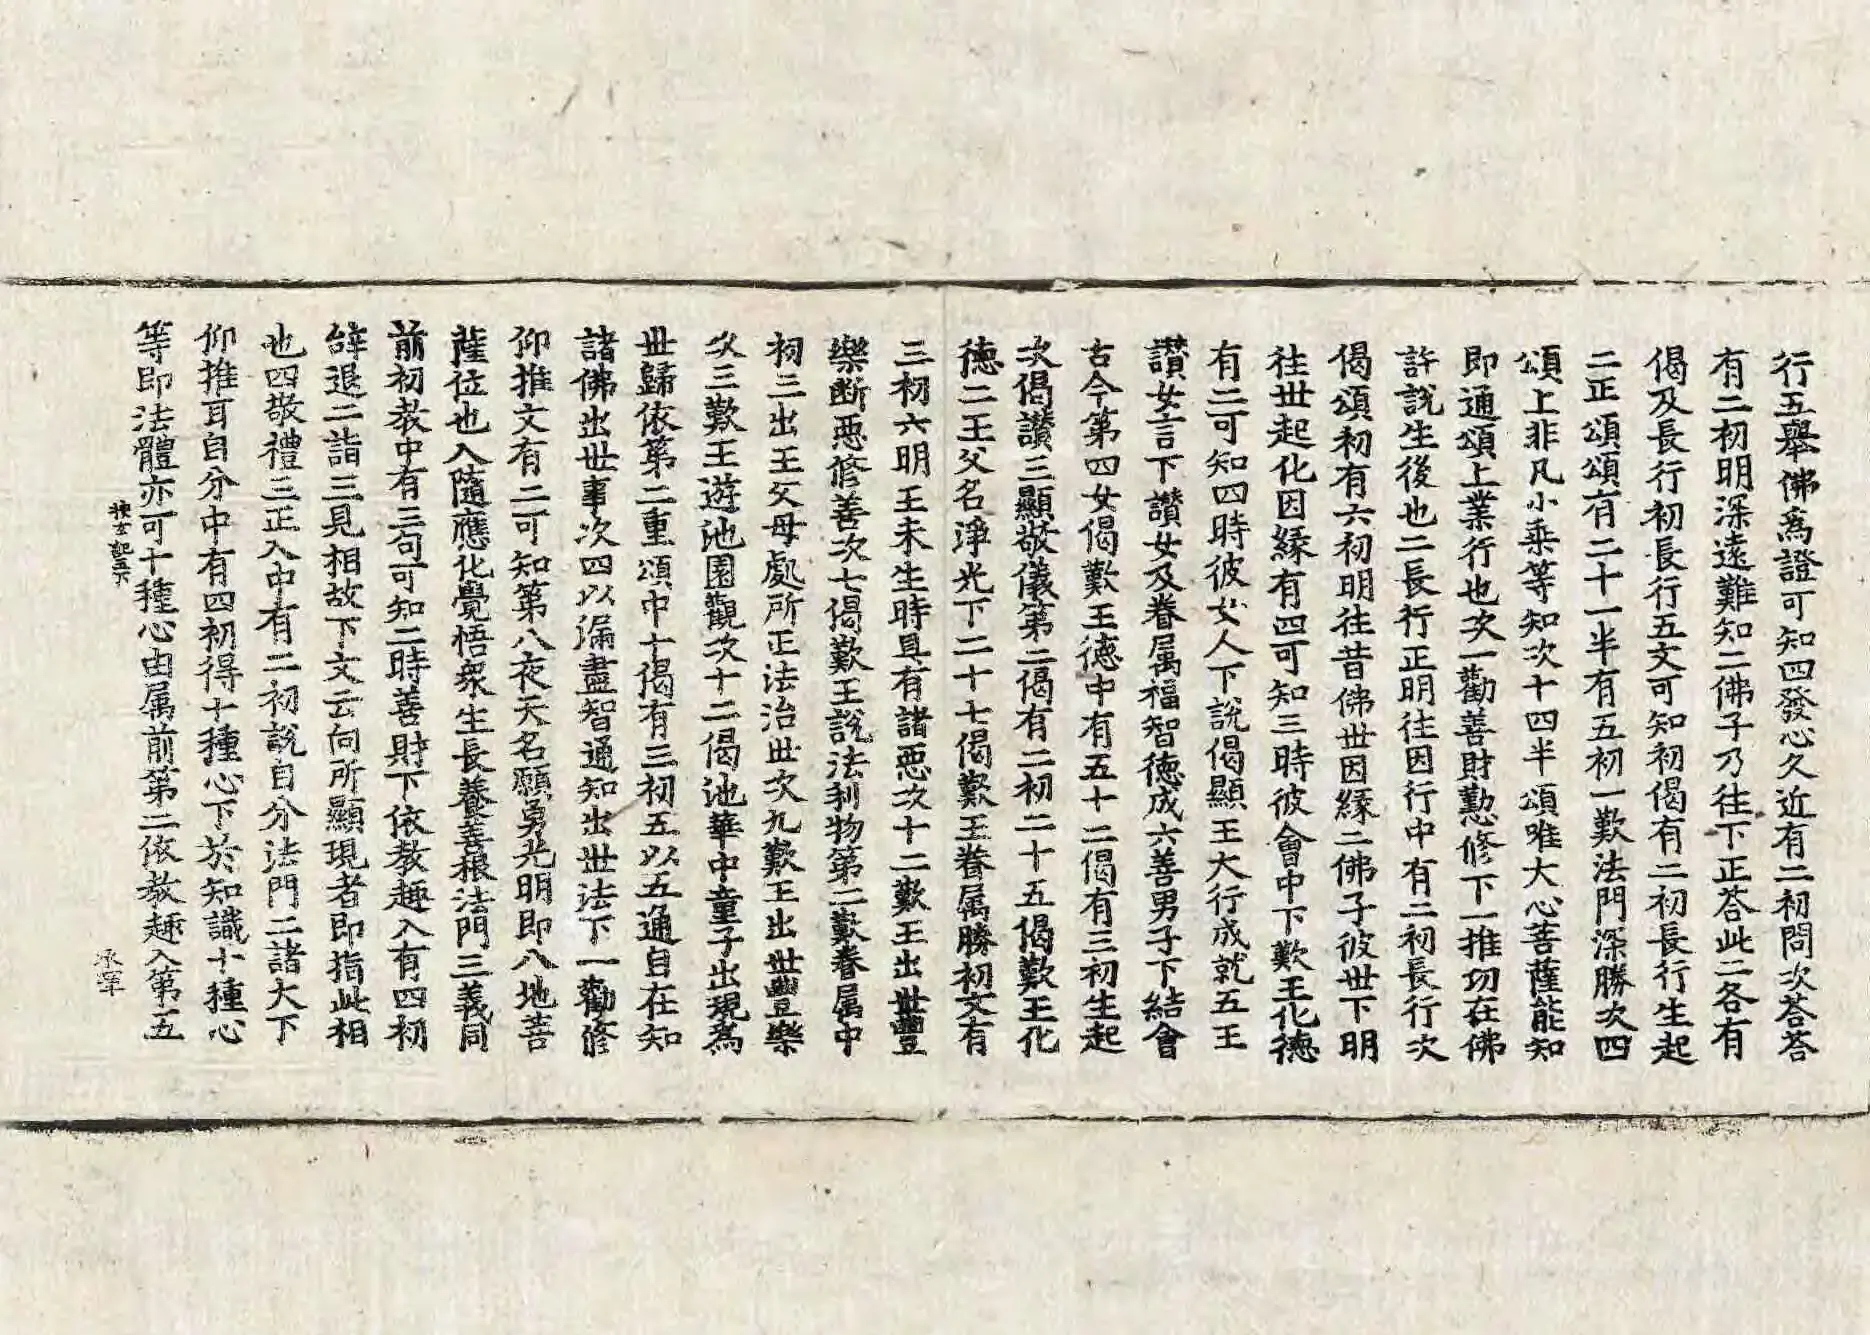 行五舉佛為證可知四發心久近有二初問次荅荅
有二初明深遠難知二佛子乃往下正荅此二各有
偈及長行初長行五文可知初偈有二初長行生起
二正頌頌有二十一半有五初一歎法門深勝次四
頌上非凡小乗等知次十四半頌唯大心菩薩能知
即通頌上業行也次一勸善財懃修下一推功在佛
許說生後也二長行正明往因行中有二初長行次
偈頌初有六初明往昔佛世因緣二佛子彼世下明
往世起化因緣有四可知三時彼會中下歎王化德
有二可知四時彼女人下說偈顯王大行成就五王
讃女言下讃女及眷属福智德成六善男子下結會
古今第四女偈歎王德中有五十二偈有三初生起
次偈讃三顯敬儀第二偈有二初二十五偈歎王化
德二王父名淨光下二十七偈歎王眷属勝初文有
三初六明王未生時具有諸惡次十二歎王出世豐
樂斷惡修善次七偈歎王說法利物第二歎眷属中
初三出王父母處所正法治世次九歎王出世豐樂
次三歎王遊池園觀次十二偈池華中童子出現為
世歸依第二重頌中十偈有三初五以五通自在知
諸佛出世事次四以漏盡智通知出世法下一勸修
仰推文有二可知第八夜天名願勇光明即八地菩
薩位也入隨應化覺悟衆生長養善根法門三義同
前初教中有三句可知二時善財下依教趣入有四初
辤退二詣三見相故下文云向所顯現者即指此相
也四敬禮三正入中有二初說自分法門二諸大下
仰推耳自分中有四初得十種心下於知識十種心
等即法體亦可十種心由属前第二依教趣入第五
搜玄記五下
承軍